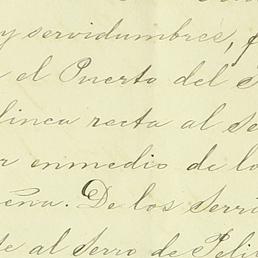 y servidumbres,
el Puerto del
linea recta al
enmedio de lo
De los Serri
al Serro de Peli